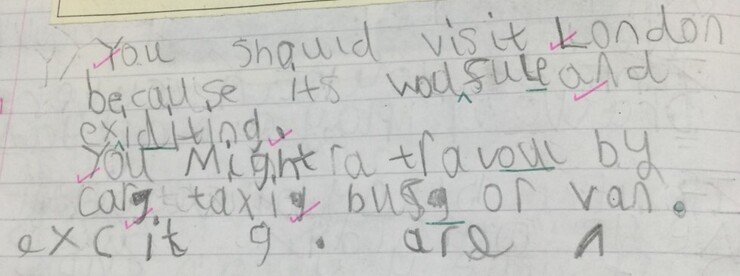 You should visit London
because its wodfule and
exiditind,
You Might ra travoul by
car, taxi, bus, or van.
excit g. are n